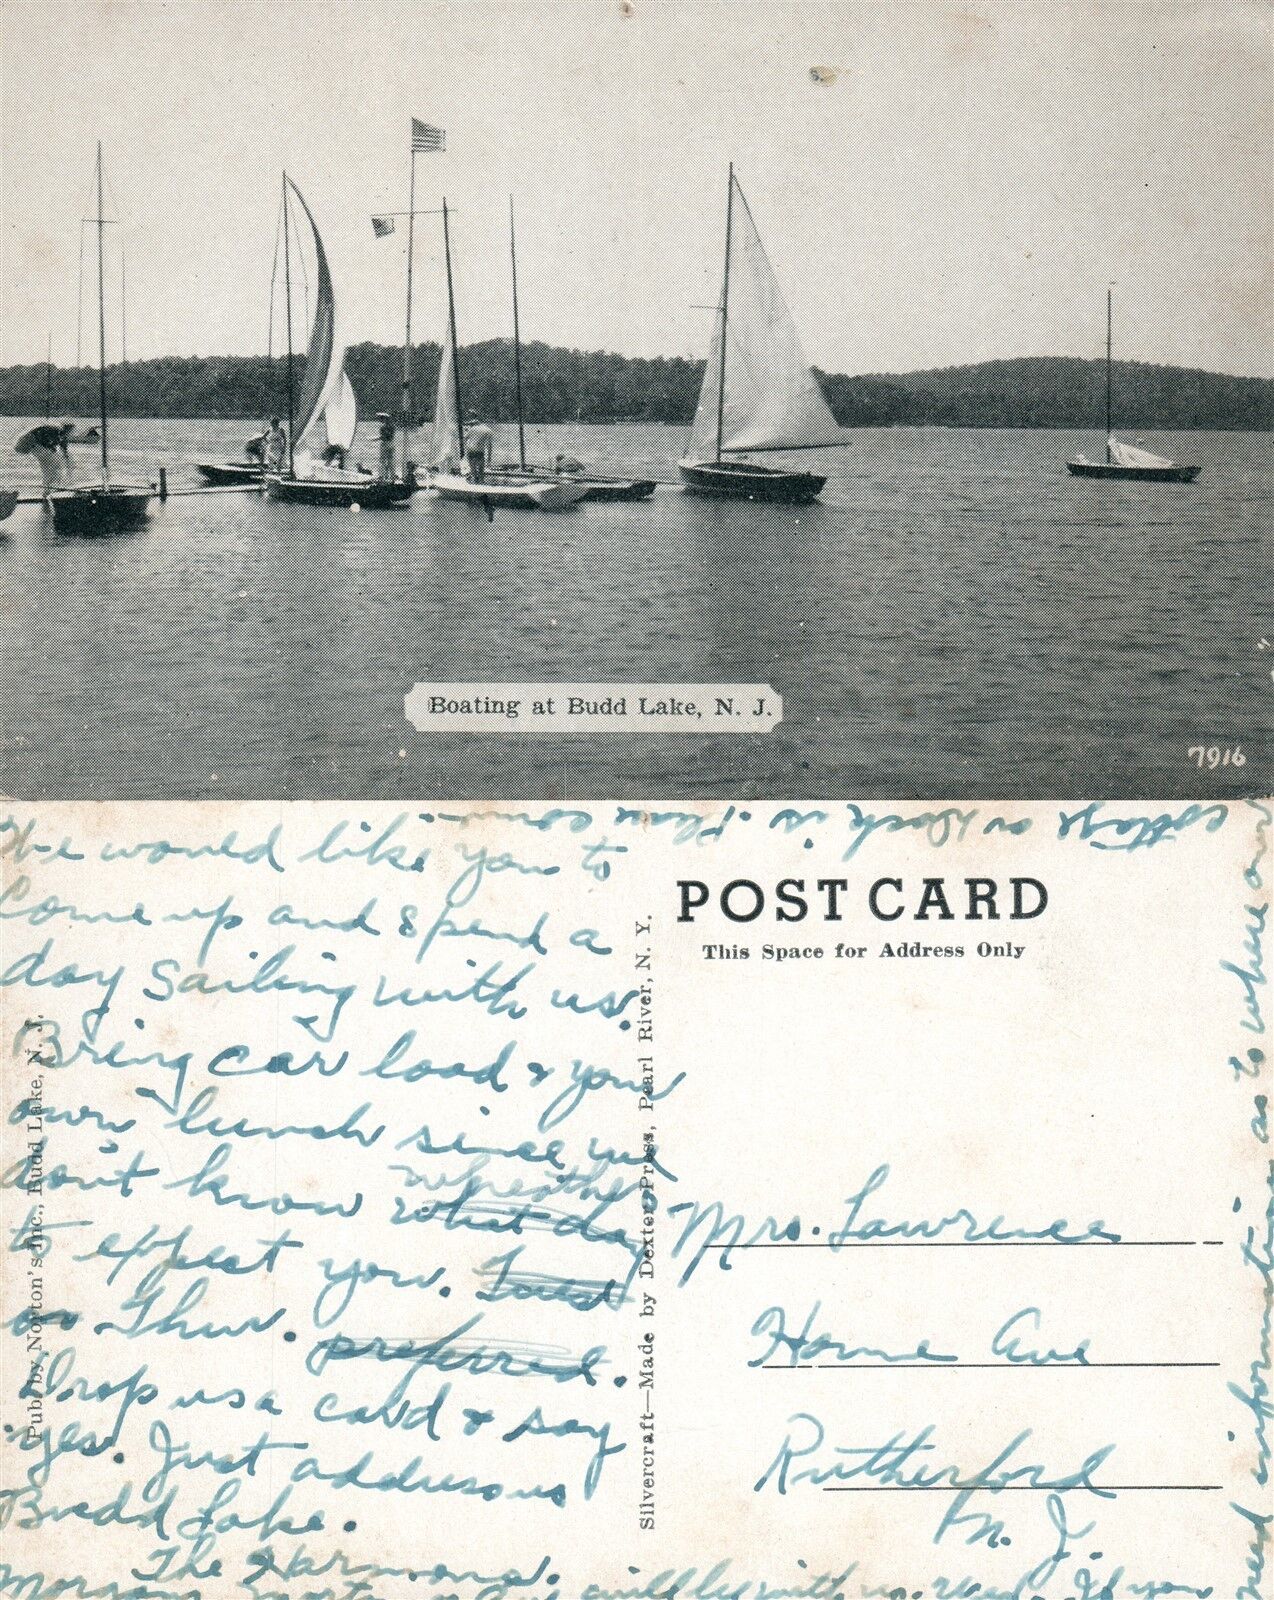 Boating at Budd Lake, N. J.
7916
We would like you to
Come up and spend a
day sailing with us.
Bring car load & your
own lunch since we
don't know what day
whether
to expect you. Tues
or Thur. preferred.
Drop us a card & say
yes. Just address us
Budd Lake.
The Harmons.
will be with us. Wed. If you
need information as to where our
cottage or dock is. Please come.
Pub. by Norton's Inc., Budd Lake, N. J.
Silvercraft—Made by Dexter Press, Pearl River, N. Y.
POST CARD
This Space for Address Only
Mrs. Lawrence
Home Ave
Rutherford
N. J.